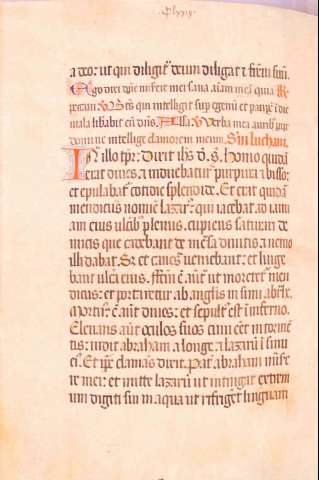 Clxxix.
a deo: ut qui diligit deum diligat ⁊ frem suu.
Ego dixi dne miserere mei sana aiam mea quia
peccaui. V Bts qui intelligit sup egenu et paupe i die
mala libabit eu dns. Alla. V Verba mea aurib; pcipe
domine intellige clamorem meum. Sm lucham.
In illo tpr: Dixit ihs d. s. Homo quida
erat diues. ⁊ induebatur purpura ⁊ bisso:
et epulabat cotidie splendide. Et erat quida
mendicus noie lazar9: qui iacebat ad ianu
am eius ulcib9 plenus. cupiens saturari de
micis que cadebant de mesa diuitis ⁊ nemo
illi dabat. Sz et canes ueniebant: et linge
bant ulcera eius. ffcm e aut ut moreret men
dicus: et portaretur ab anglis in sinu abrhe.
Mortu9 e aut diues: et sepult9 est i inferno.
Eleuans aut oculos suos cum eet in torme
tis: uidit abraham a longe: ⁊ lazaru i sinu
ei9. Et ipe clamas dixit. Pat abraham mise
re mei: et mitte lazaru ut intingat extrem
um digiti sui in aqua ut refriget linguam